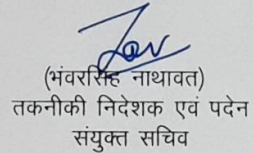 (भंवरसिंह नाथावत)
तकनीकी निदेशक एवं पदेन
संयुक्त सचिव